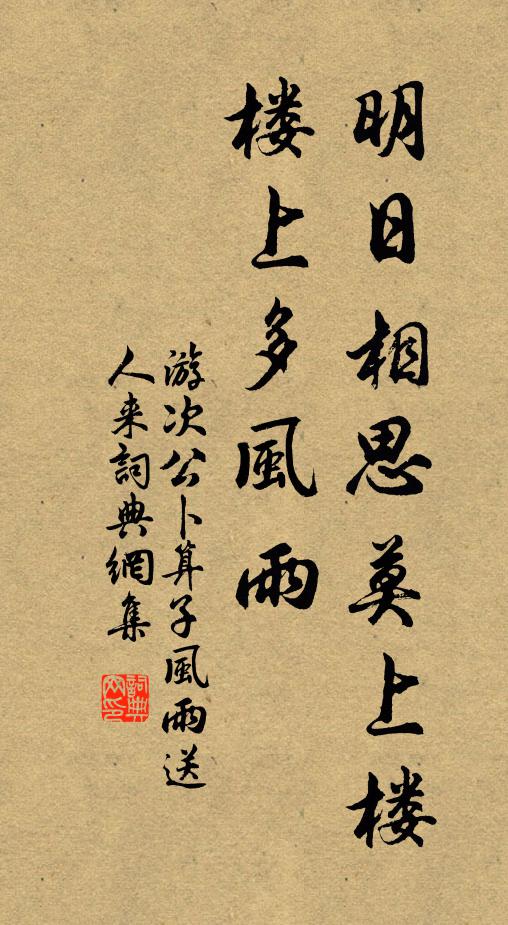 明日相思莫上楼
楼上多風雨
游次公卜算子風雨送
人来詞典網集